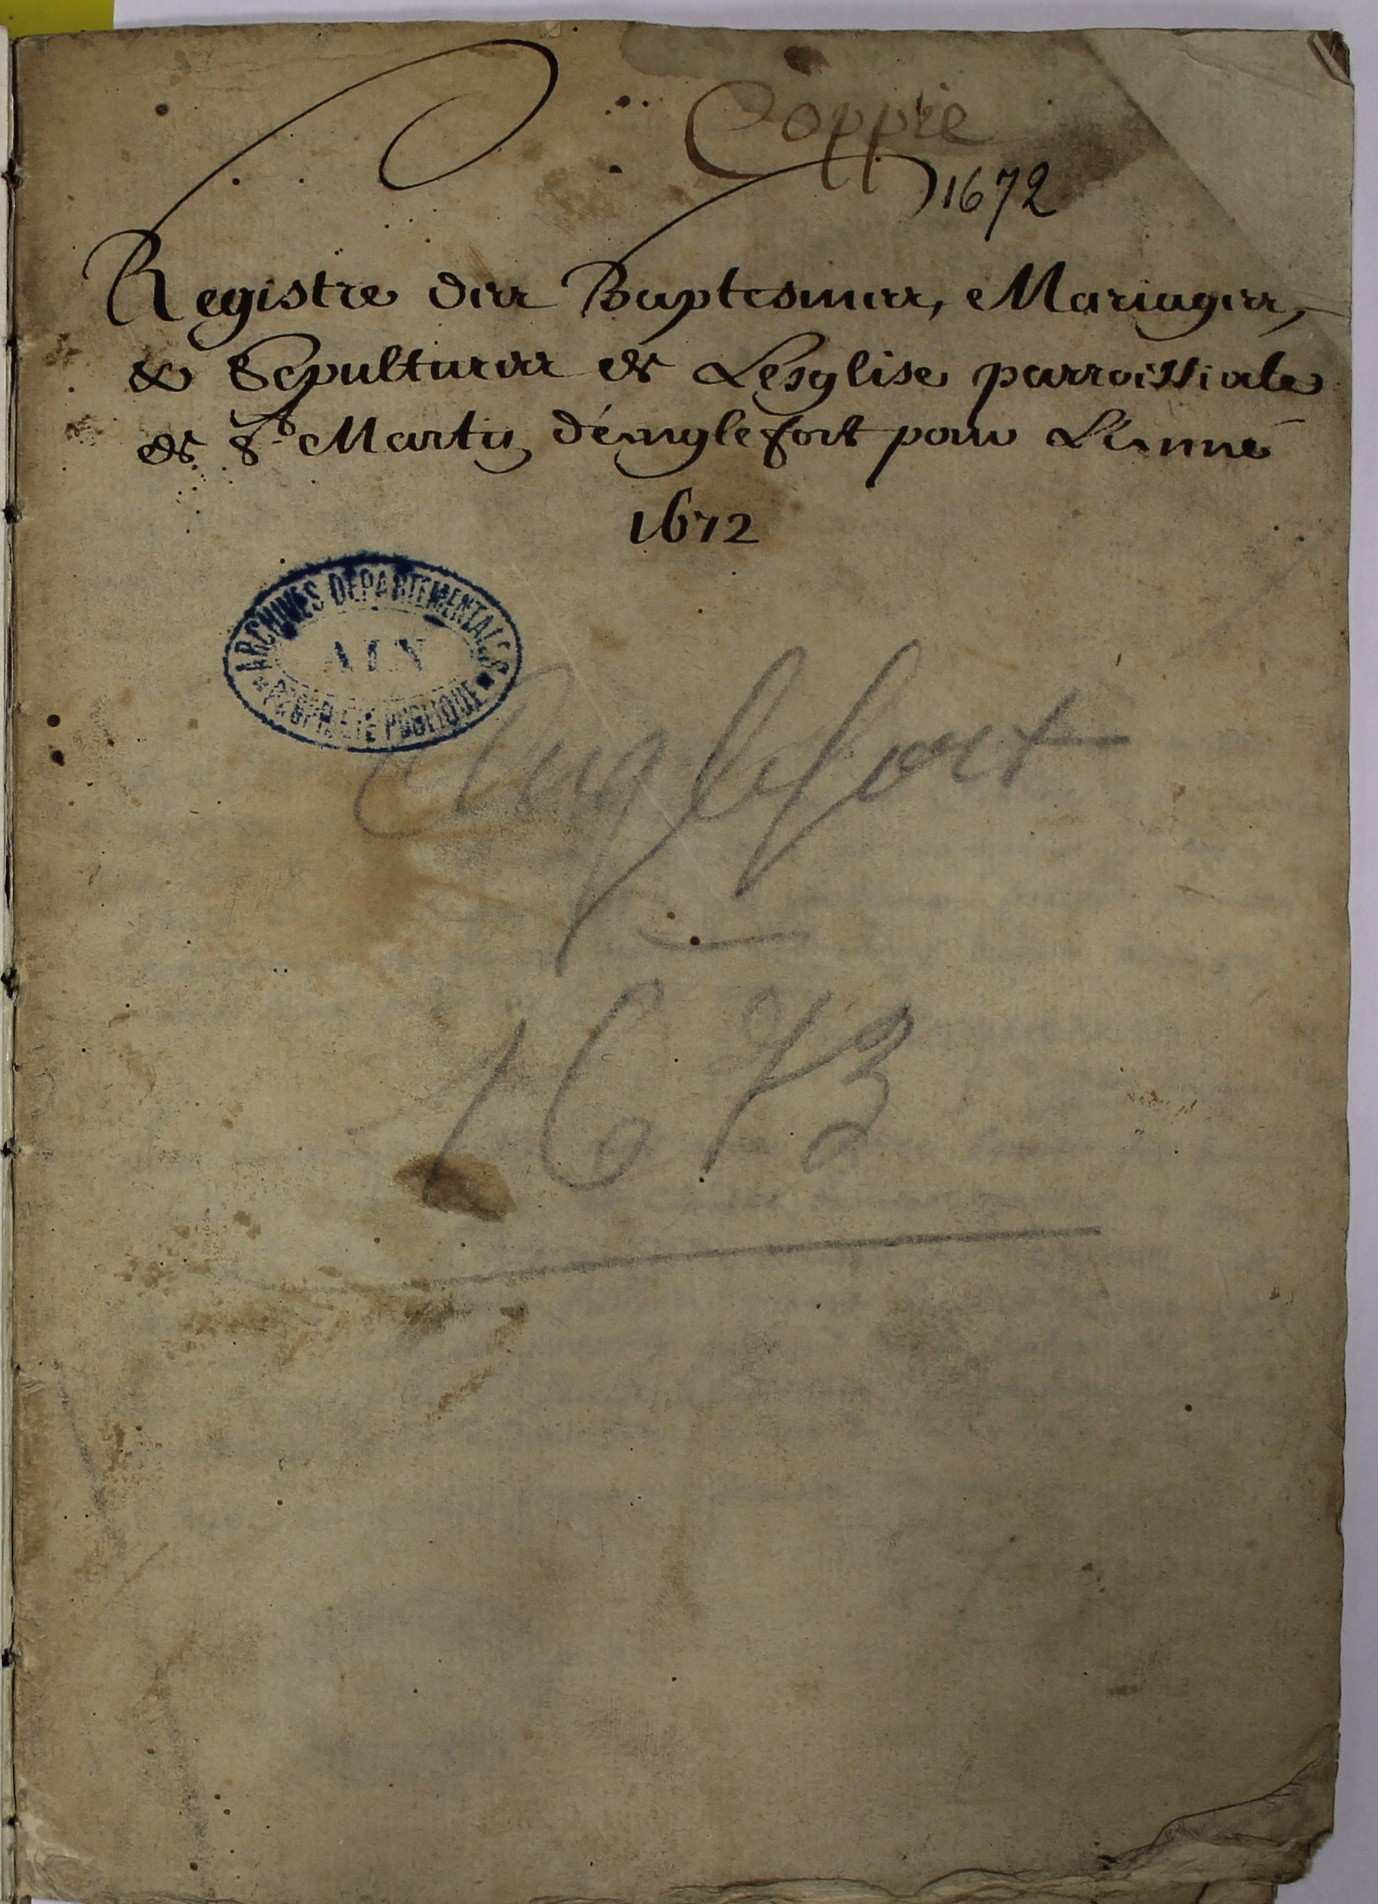 Coppie
1672
Registre des Baptesmes, Mariages,
& Sepultures de Lesglise parroissiale
de St Martin d'énglefort pour L'année
1672
ARCHIVES DEPARTEMENTALES
AIN
PROPRIETE PUBLIQUE
Anglefort
1673